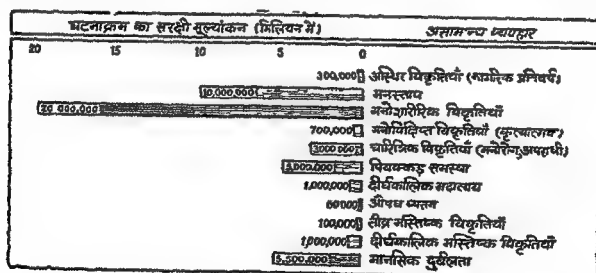 घटनाक्रम का सरक्षी मूल्यांकन (मिलियन में) असामान्य व्यवहार
20 15 10 5 0
300,000 अस्थिर विकृतियाँ
10,000,000 मनस्ताप
20,000,000 मनोशारीरिक विकृतियाँ
700,000 मनोविक्षिप्त विकृतियाँ (कृत्यात्मक)
3000000 चारित्रिक विकृतियाँ (मनोरोग, अपराधी)
5,000,000 पियक्कड़ समस्या
1,000,000 दीर्घकालिक मदात्यय
60000 औषध व्यसन
100,000 तीव्र मस्तिष्क विकृतियाँ
1,000,000 दीर्घकालिक मस्तिष्क विकृतियाँ
5,500,000 मानसिक दुर्बलता